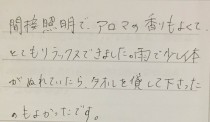 間接照明で、アロマの香りもよくて、
とてもリラックスできました。雨で少し体
がぬれていたら、タオルを貸して下さった
のもよかったです。